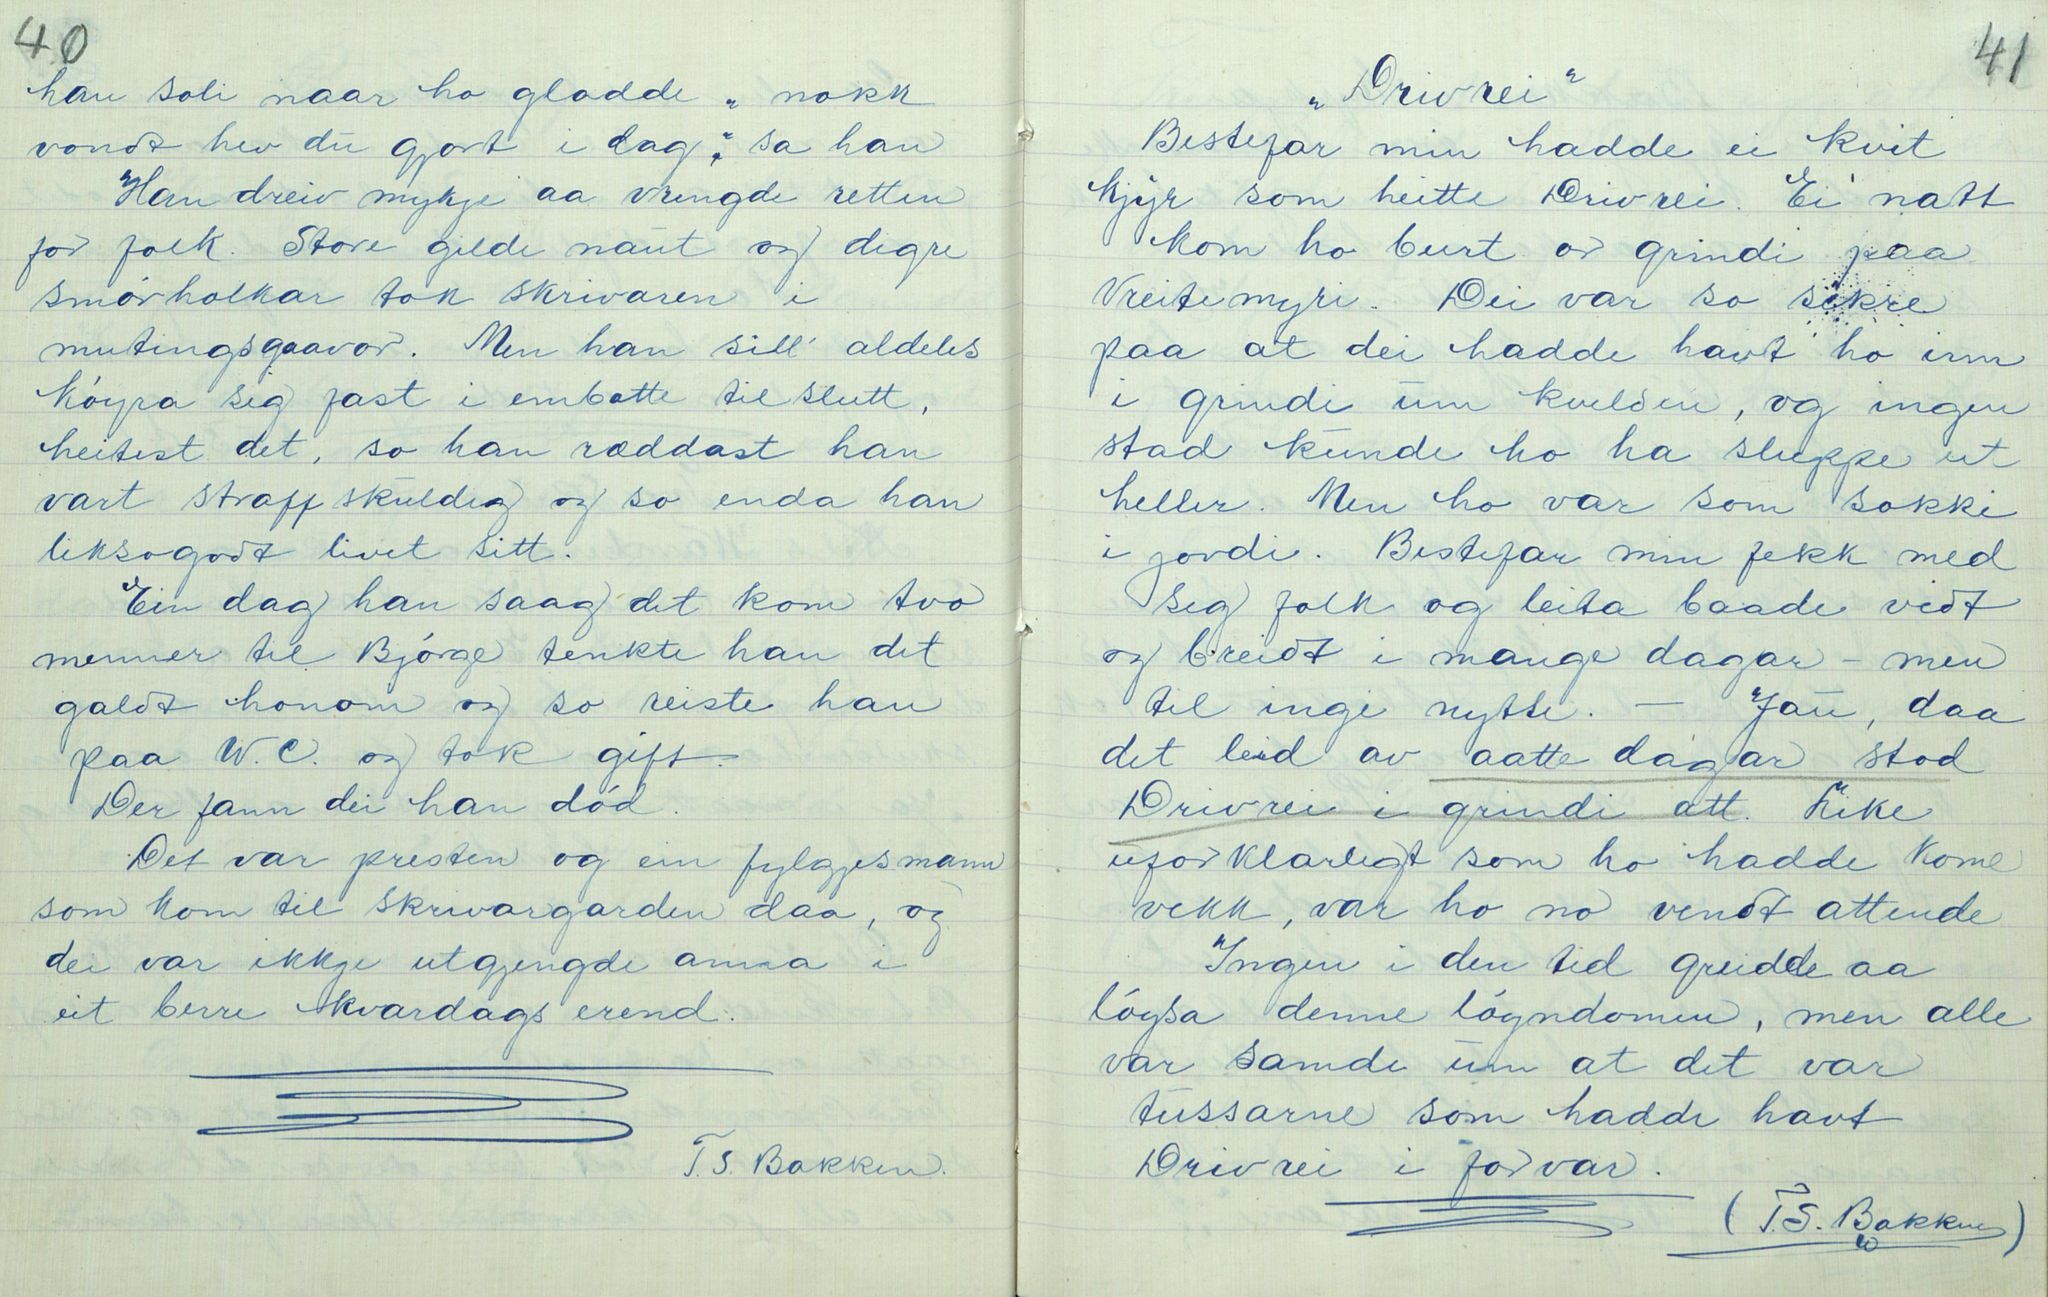 40
han soli naar ho gladde „nokk
vondt hev du gjort i dag", sa han
Han dreiv mykje aa vrengde retten
for folk. Store gilde naut og digre
smörholkar tok skrivaren i
mutingsgaavor. Men han sill' aldeles
köyra seg fast i embætte til slutt,
heitest det, so han ræddast han
vart straffskuldig og so enda han
liksogodt livet sitt.
Ein dag han saag det kom tvo
menner til Bjórge tenkte han det
galdt honom og so reiste han
paa W.C. og tok gift.
Der fann dei han död.
Det var presten og ein fylgjesmann
som kom til skrivargarden daa, og
dei var ikkje utgjengde anna i
eit berre kvardags erend.
T.S. Bakken.
41
„Drivrei"
Bestefar min hadde ei kvit
kjýr som heitte Drivrei. Ei natt
kom ho burt or grindi paa
Vreitemyri. Dei var so sikre
paa at dei hadde havt ho inn
i grindi um kvelden, og ingen
stad kunde ho ha sluppe ut
heller. Men ho var som sokki
i jordi. Bestefar min fekk med
seg folk og leita baade vidt
og breidt i mange dagar – men
til ingi nytte. – Jau, daa
det leid av aatte dagar stod
Drivrei i grindi att. Like
uforklarlegt som ho hadde kome
vekk, var ho no vendt attende
Ingen i den tid greidde aa
löysa denne löyndomen, men alle
var samde um at det var
tussarne som hadde havt
Drivrei i forvar.
(T.S. Bakken)